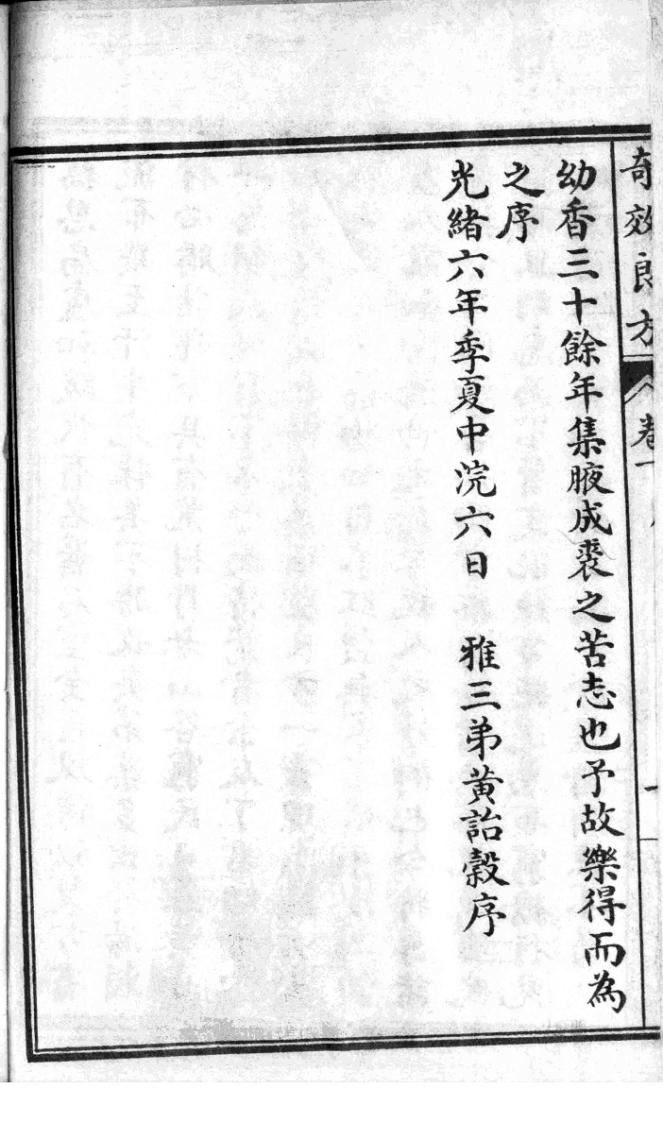 奇效良方 卷一
幼香三十餘年集腋成裘之苦志也予故樂得而為
之序
光緒六年季夏中浣六日 雅三弟黃詒穀序